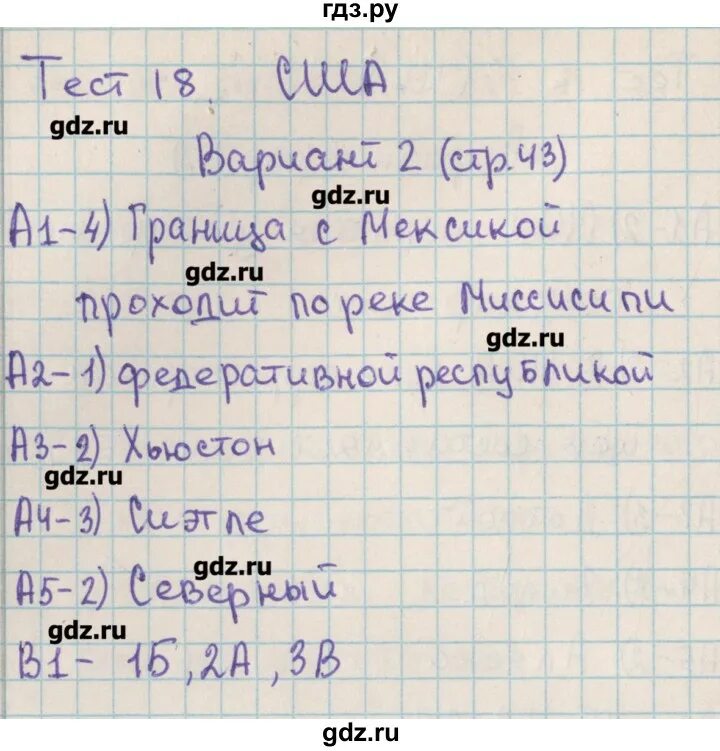 гдз.ру
Тест 18. США
gdz.ru
Вариант 2 (стр.43)
gdz.ru
А1-4) Граница с Мексикой
gdz.ru
проходит по реке Миссисипи
gdz.ru
А2-1) федеративной республикой
А3-2) Хьюстон
gdz.ru
А4-3) Сиэтле
gdz.ru
А5-2) Северный
gdz.ru
В1- 1Б, 2А, 3В
gdz.ru